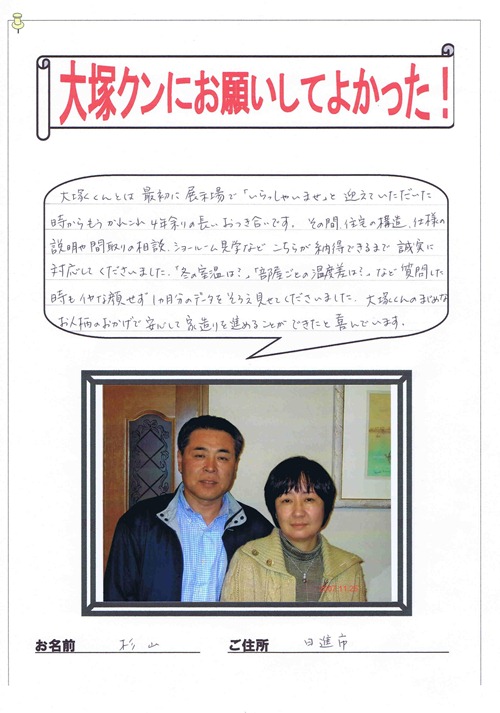 大塚クンにお願いしてよかった！
大塚くんとは 最初に 展示場で「いらっしゃいませ」と 迎えていただいた
時からもうかれこれ 4年余りの長いおつき合いです。その間、住宅の構造、仕様の
説明や間取りの相談、ショールーム見学など こちらが納得できるまで 誠実に
対応してくださいました。「冬の室温は？」「部屋ごとの温度差は？」など 質問した
時も イヤな顔せず 1ヵ月分のデータをそろえ見せてくださいました。大塚くんのまじめな
お人柄のおかげで安心して 家造りを進めることが できたと喜んでいます。
2007.11.25
お名前 杉山 ご住所 日進市